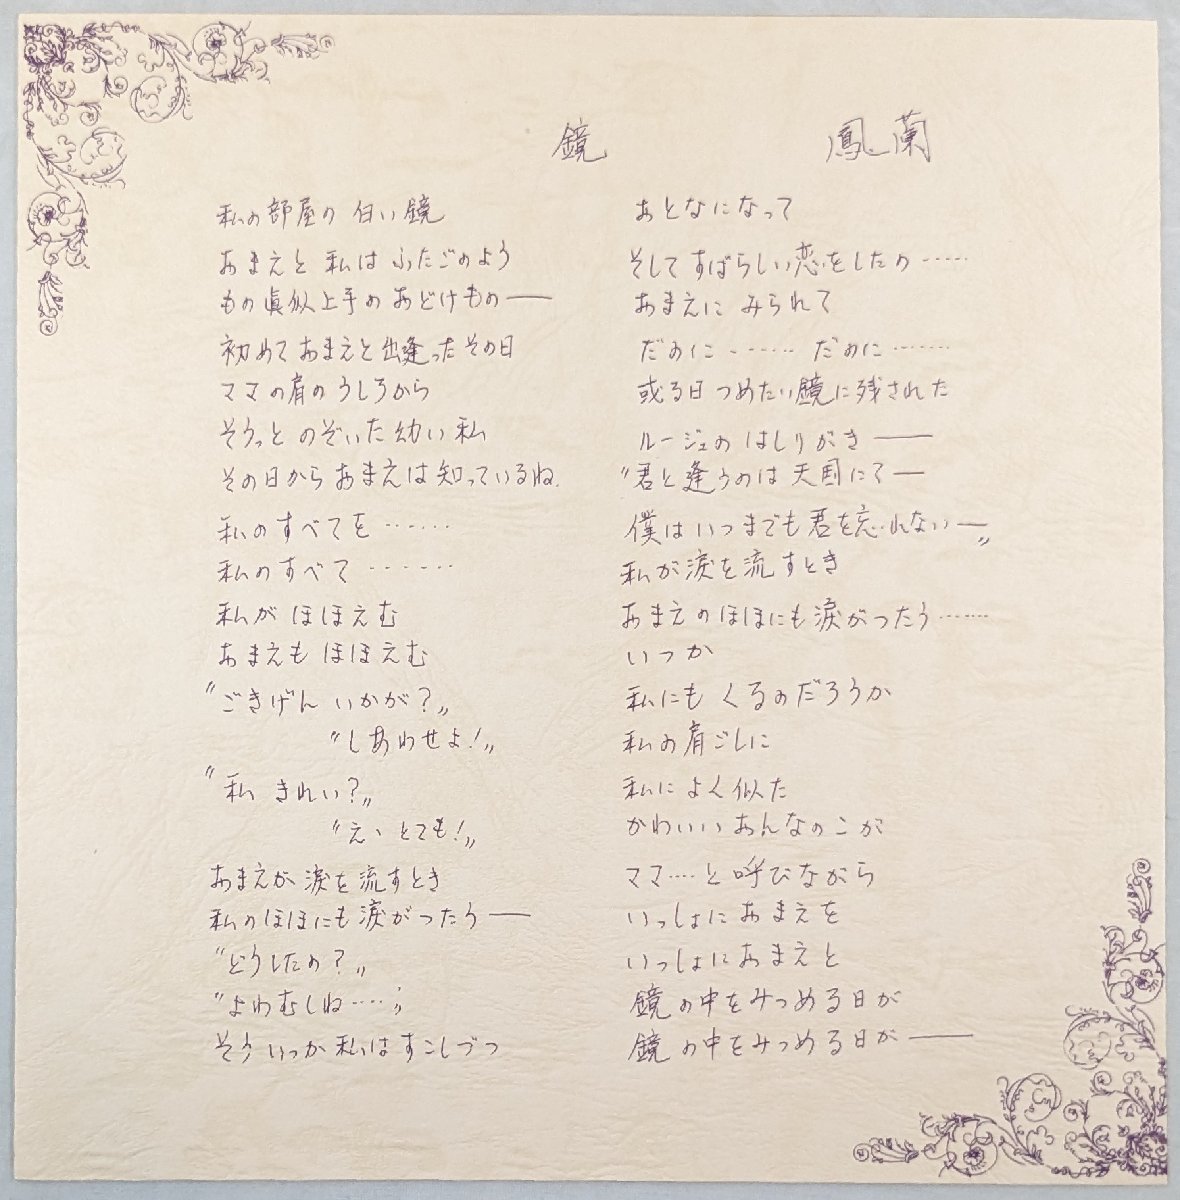 鏡　鳳蘭
私の部屋の 白い鏡
おまえと 私は ふたごのよう
もの眞似上手の おどけもの──
初めて おまえと 出逢った その日
ママの肩の うしろから
そうっと のぞいた 幼い 私
その日から おまえは 知っているね.
私の すべてを ……
私の すべて ……
私が ほほえむ
おまえも ほほえむ
〝ごきげん いかが?〟
〝しあわせよ!〟
〝私 きれい?〟
〝えゝ とても!〟
おまえが 涙を 流すとき
私の ほほにも 涙が つたう──
〝どうしたの?〟
〝よわむしね……〟
そう いつか 私は すこしづつ
おとなになって
そして すばらしい 恋を したの ……
おまえに みられて
だめに …… だめに ……
或る日 つめたい 鏡に 残された
ルージュの はしりがき──
〝君と 逢うのは 天国にて──
僕は いつまでも 君を 忘れない──〟
私が 涙を 流すとき
おまえの ほほにも 涙が つたう ……
いつか
私にも くるのだろうか
私の 肩ごしに
私に よく 似た
かわいい おんなのこが
ママ…‥と 呼びながら
いっしょに おまえを
いっしょに おまえと
鏡の中を みつめる 日が
鏡の中を みつめる 日が──